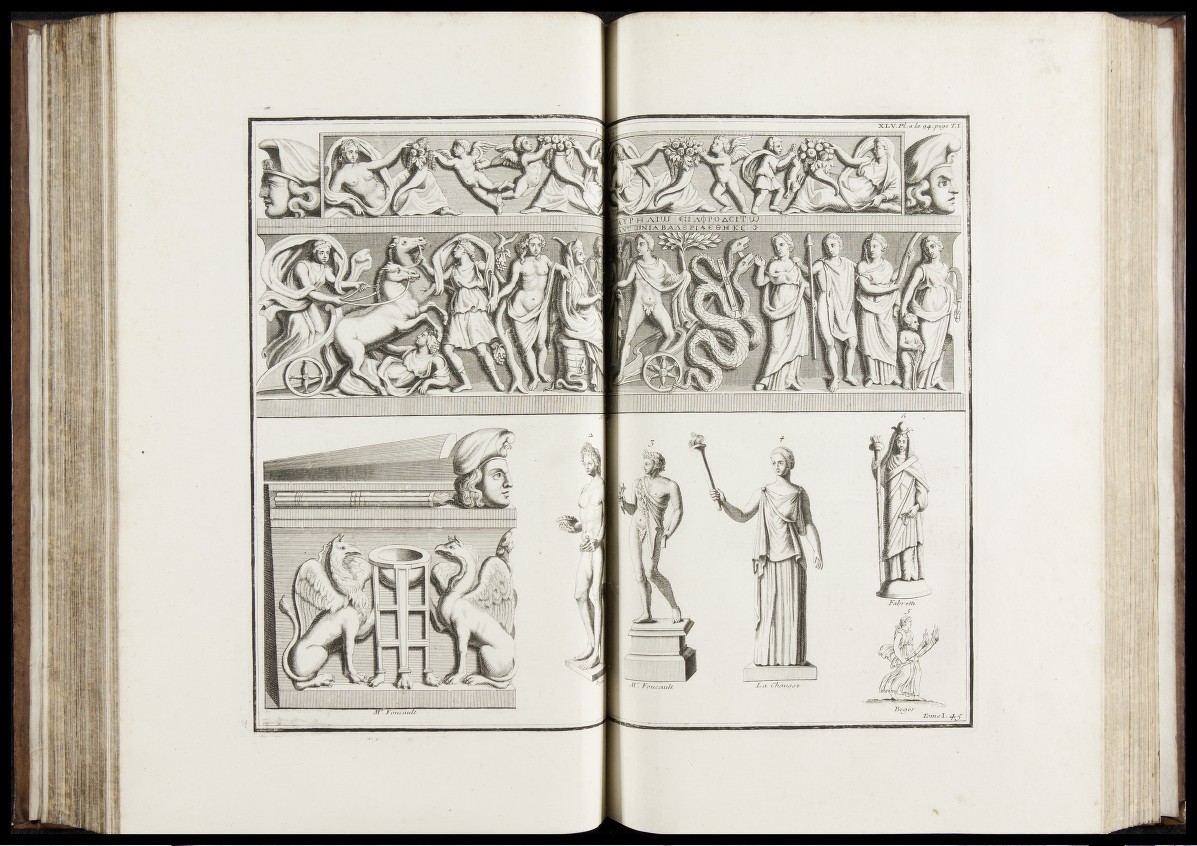 XLV. Pl. a la 94. page T.I
ΑΥΡΗΛΙΩ ΕΠΑΦΡΟΔΕΙΤΩ
ΒΑΛΕΡΙΑ ΕΘΗΚΕ
2
3
4
6
Fabretti
5
Mr. Foucault
La Chausse
Beger
Mr. Foucault
Tome I. 45